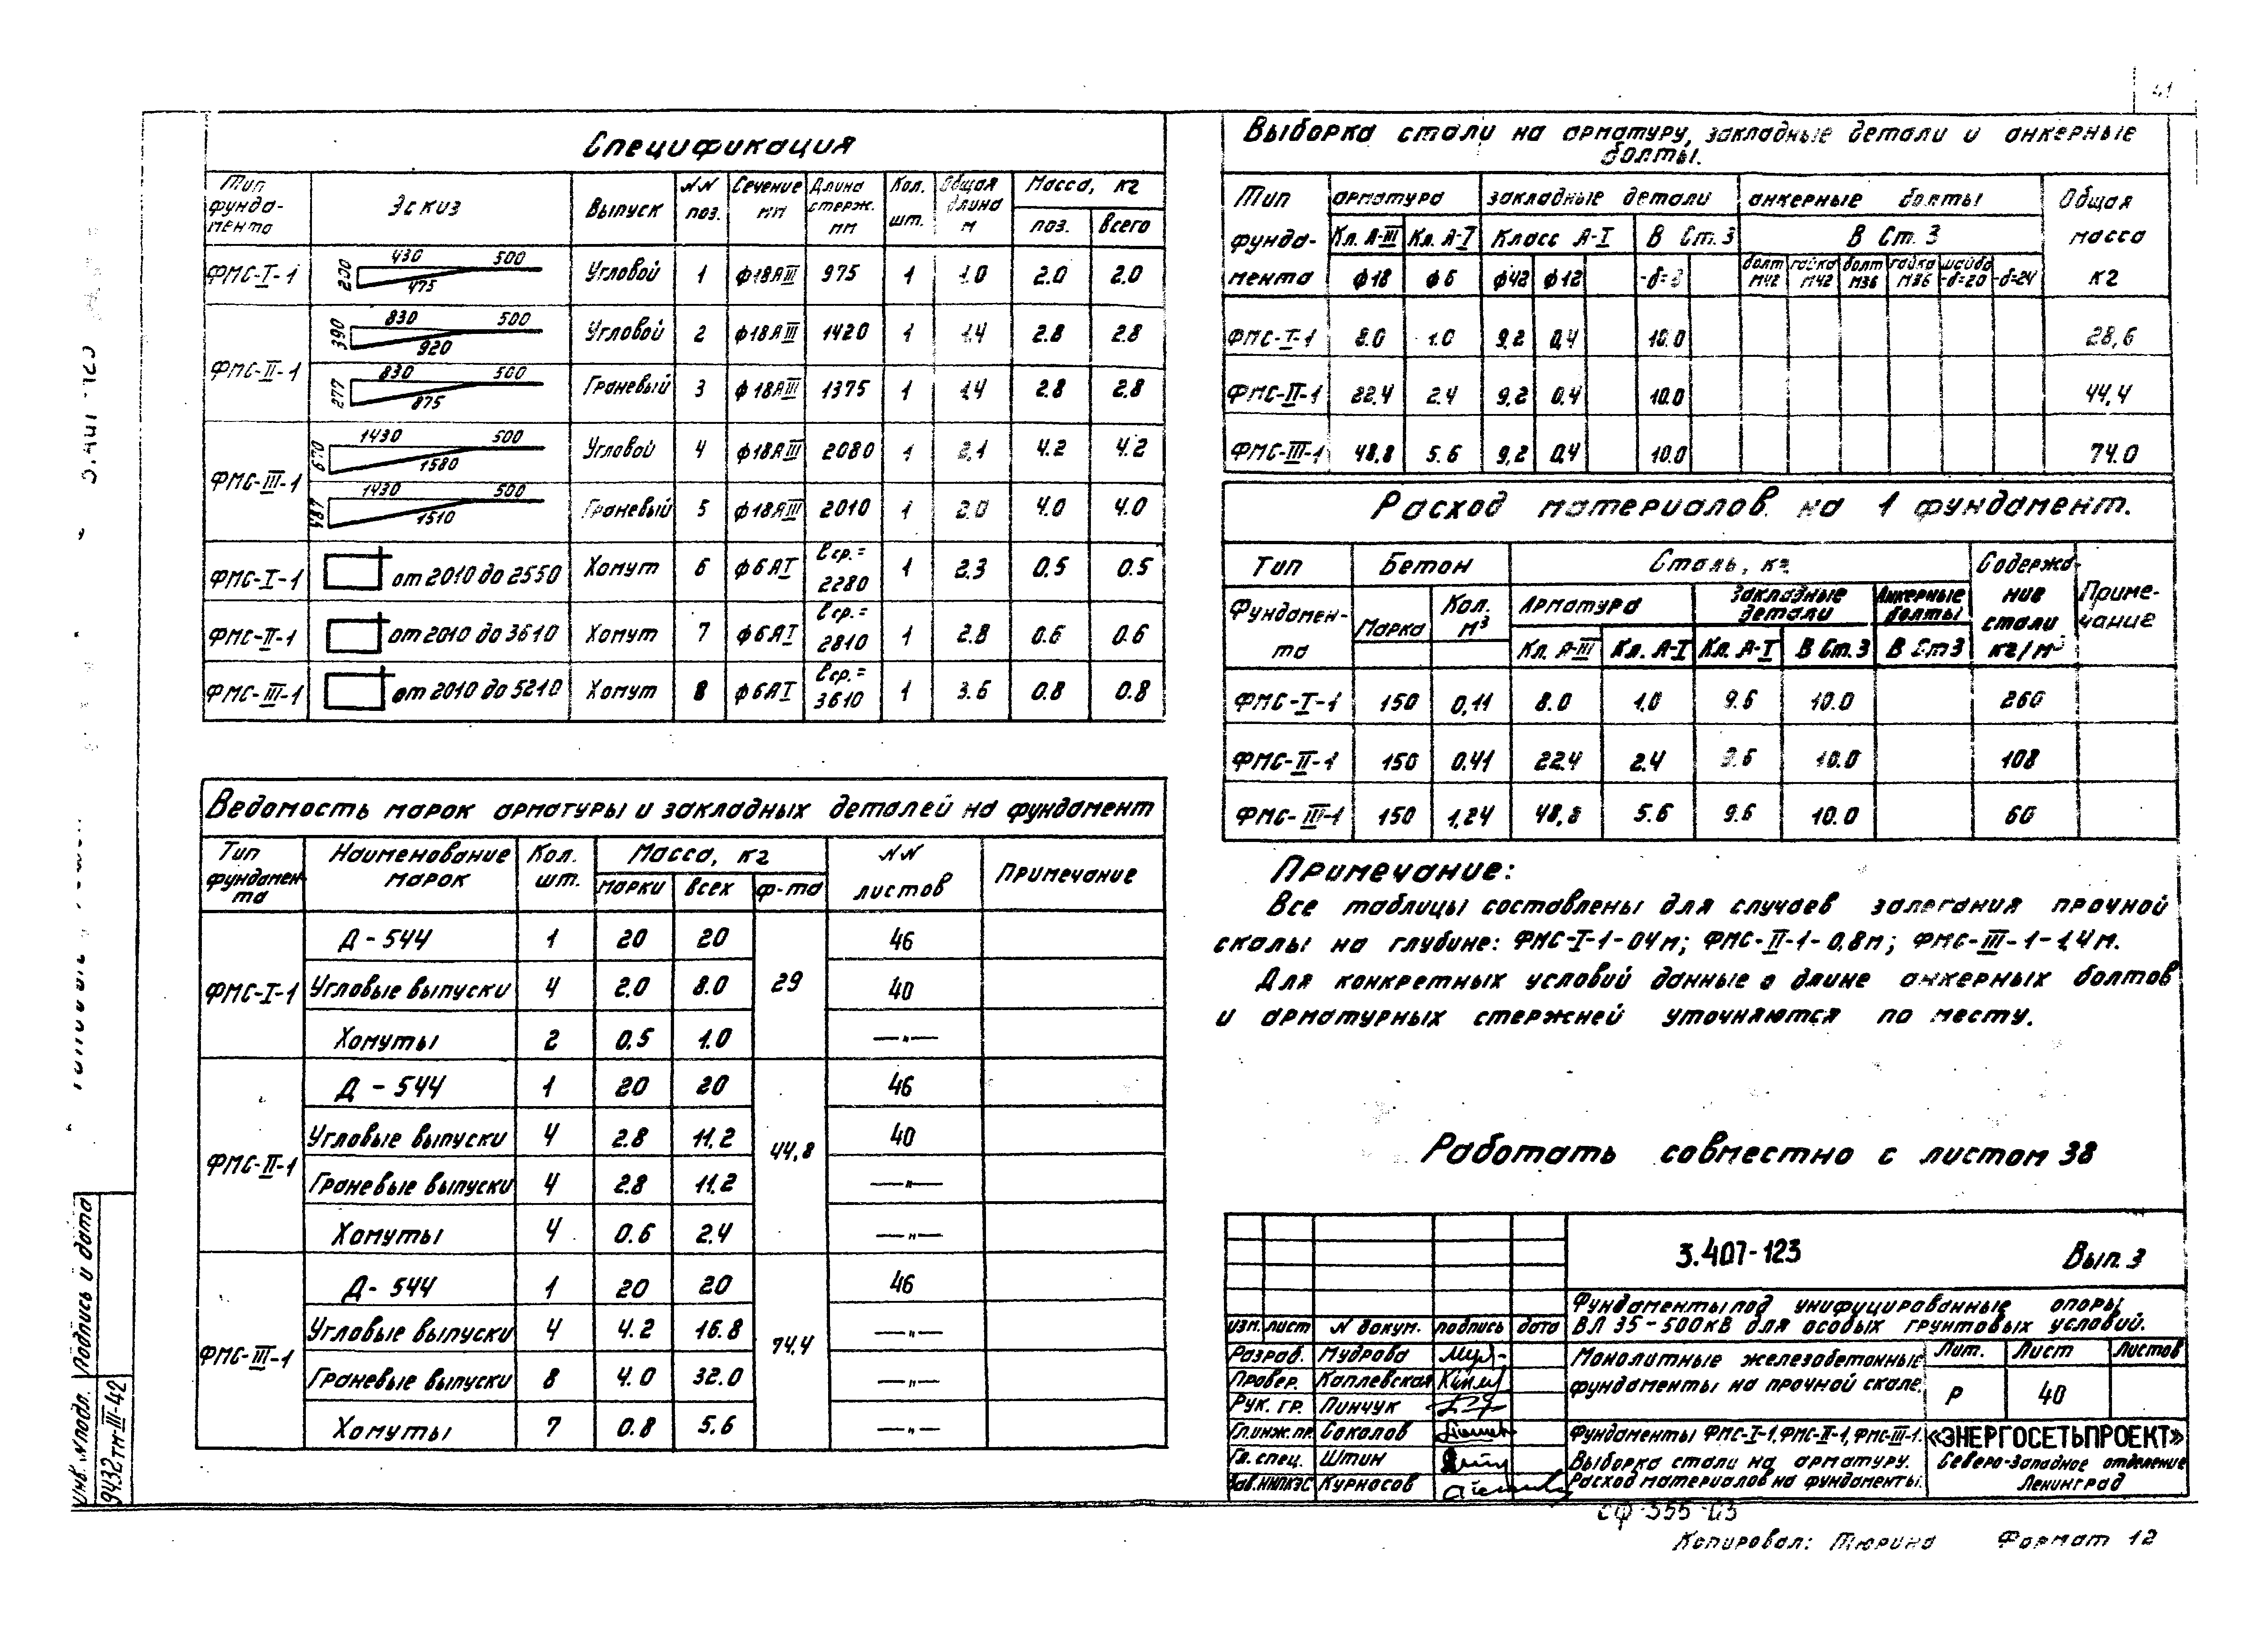 41
Спецификация
Тип фунда- мента | Эскиз | Выпуск | NN поз. | Сечение мм | Длина стерж. мм | Кол. шт. | Общая длина м | Масса, кг | поз. | Всего
ФМС-I-1 | 200 430 500 475 | Угловой | 1 | ф18АIII | 975 | 1 | 1.0 | 2.0 | 2.0
ФМС-II-1 | 390 830 500 920 | Угловой | 2 | ф18АIII | 1420 | 1 | 1.4 | 2.8 | 2.8
277 830 500 875 | Граневый | 3 | ф18АIII | 1375 | 1 | 1.4 | 2.8 | 2.8
ФМС-III-1 | 670 1430 500 1580 | Угловой | 4 | ф18АIII | 2080 | 1 | 2.1 | 4.2 | 4.2
487 1430 500 1510 | Граневый | 5 | ф18АIII | 2010 | 1 | 2.0 | 4.0 | 4.0
ФМС-I-1 | от 2010 до 2550 | Хомут | 6 | ф6АI | lср.= 2280 | 1 | 2.3 | 0.5 | 0.5
ФМС-II-1 | от 2010 до 3610 | Хомут | 7 | ф6АI | lср.= 2810 | 1 | 2.8 | 0.6 | 0.6
ФМС-III-1 | от 2010 до 5210 | Хомут | 8 | ф6АI | lср.= 3610 | 1 | 3.6 | 0.8 | 0.8
Ведомость марок арматуры и закладных деталей на фундамент
Тип фундамен- та | Наименование марок | Кол. шт. | Масса, кг | марки | всех | ф-та | NN листов | Примечание
ФМС-I-1 | Д-544 | 1 | 20 | 20 | 29 | 46
Угловые выпуски | 4 | 2.0 | 8.0 | 40
Хомуты | 2 | 0.5 | 1.0 | —"—
ФМС-II-1 | Д-544 | 1 | 20 | 20 | 44,8 | 46
Угловые выпуски | 4 | 2.8 | 11.2 | 40
Граневые выпуски | 4 | 2.8 | 11.2 | —"—
Хомуты | 4 | 0.6 | 2.4 | —"—
ФМС-III-1 | Д-544 | 1 | 20 | 20 | 74,4 | 46
Угловые выпуски | 4 | 4.2 | 16.8 | —"—
Граневые выпуски | 8 | 4.0 | 32.0 | —"—
Хомуты | 7 | 0.8 | 5.6 | —"—
Выборка стали на арматуру, закладные детали и анкерные
болты.
Тип фунда- мента | арматура | закладные детали | анкерные болты | Общая масса кг
Кл. А-III | Кл. А-I | Класс А-I | В Ст. 3 | В Ст. 3
ф18 | ф6 | ф42 | ф12 | болт М42 | гайка М42 | болт М36 | гайка М36 | шайба -δ=20 | -δ=24
ФМС-I-1 | 8.0 | 1.0 | 9,2 | 0,4 | 10.0 | 28,6
ФМС-II-1 | 22.4 | 2.4 | 9,2 | 0.4 | 10.0 | 44,4
ФМС-III-1 | 48,8 | 5.6 | 9,2 | 0,4 | 10.0 | 74.0
Расход материалов на 1 фундамент.
Тип Фундамен- та | Бетон | Сталь, кг | Содержа- ние стали кг/м³ | Приме- чание
Марка | Кол. м³ | Арматура | Закладные детали | Анкерные болты
Кл. А-III | Кл. А-I | Кл. А-I | В Ст. 3 | В Ст3
ФМС-I-1 | 150 | 0,11 | 8.0 | 1,0 | 9.6 | 10.0 | 260
ФМС-II-1 | 150 | 0.41 | 22.4 | 2.4 | 9.6 | 10.0 | 108
ФМС-III-1 | 150 | 1,24 | 48,8 | 5.6 | 9.6 | 10.0 | 60
Примечание:
Все таблицы составлены для случаев залегания прочной
скалы на глубине: ФМС-I-1-04м; ФМС-II-1-0,8м; ФМС-III-1-1,4м.
Для конкретных условий данные о длине анкерных болтов
и арматурных стержней уточняются по месту.
Работать совместно с листом 38
3.407-123 Вып. 3
Фундаменты под унифицированные опоры
ВЛ 35-500кВ для особых грунтовых условий.
изм. лист N докум. подпись дата
Разраб. Мудрова
Провер. Каплевская
Рук. гр. Пинчук
Гл.инж.пр. Соколов
Гл. спец. Штин
Зав.НИЛКЭС Курносов
Монолитные железобетонные
фундаменты на прочной скале.
Лит. Лист Листов
Р 40
Фундаменты ФМС-I-1, ФМС-II-1, ФМС-III-1.
Выборка стали на арматуру.
Расход материалов на фундаменты.
«ЭНЕРГОСЕТЬПРОЕКТ»
Северо-Западное отделение
Ленинград
сф-355-03
Копировал: Тюрина Формат 12
Инв. N подл. Подпись и дата
9432тм-III-42